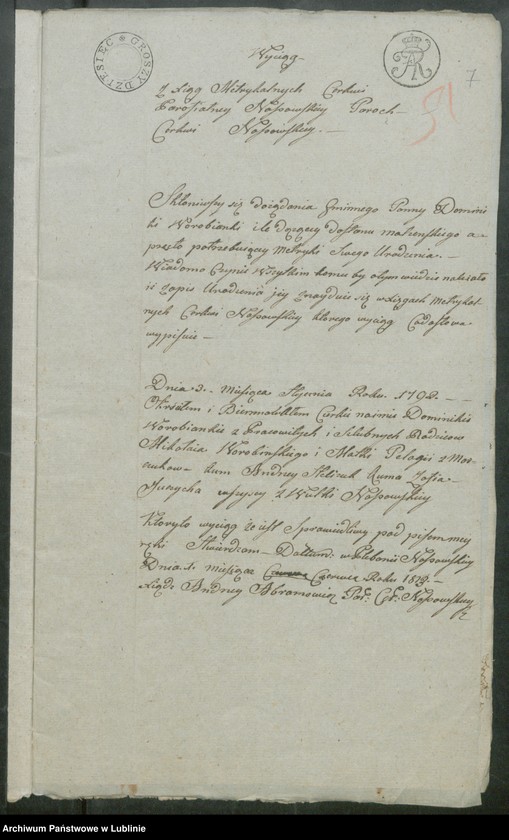 DZIESIĘĆ * GROSZY
7
Wyciąg
z Xiąg Metrykalnych Cerkwi
Parofialney Nosowskiey Paroch
Cerkwi Nosowskiey. —
Skłoniwszy się do żądania Panny Domini
ki Worobianki iż dążącey do stanu małżenskiego a
przeto potrzebuiącey metryki Swego Urodzenia. —
Wiadomo Czynię Wszytkim komu by o tym wiedzieć należało
iż zapis Urodzenia iey znayduie się w xięgach metrykal
nych Cerkwi Nosowskiey którego wyciąg Co do słowa
wypisuie —
Dnia 2. miesiąca Stycznia Roku 1792. —
Okrzciłem i Bierzmowałem Corkę naimie Dominikę
Worobiankę z Pracowitych i Slubnych Rodzicow
Mikołaia Worobinskiego i Matki Pelagii z Mar
cukow Kum Andrey Kuma Zofia
wszyscy z Wulki Nosowskiey
Który to wyciąg że iest Sprawiedliwy pod pisem mey
ręki Stwierdzam — Dattum: w Plebanii Nosowskiey
Dnia miesiąca Czerwca Roku
Xiądz Andrey Abramowicz Par: C: Nosowskiey
Archiwum Państwowe w Lublinie